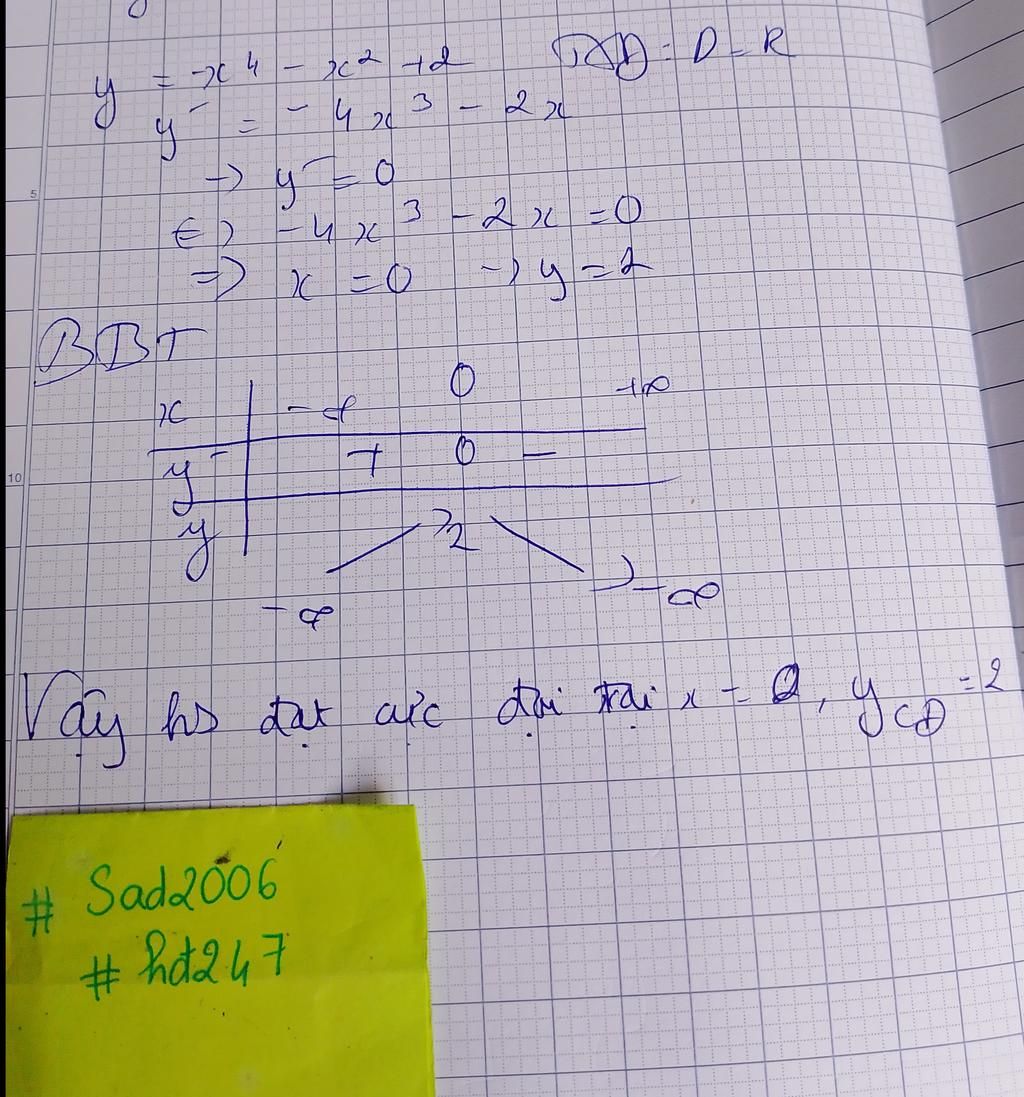 y = -x⁴ - x² + 2 TXĐ: D = R
y' = -4x³ - 2x
→ y' = 0
⇔ -4x³ - 2x = 0
⇒ x = 0 → y = 2
BBT
x -∞ 0 +∞
y' + 0 -
y 2
-∞ -∞
Vậy hs đạt cực đại tại x = 0, yCĐ = 2
# Sad2006
# hđ247
5
10